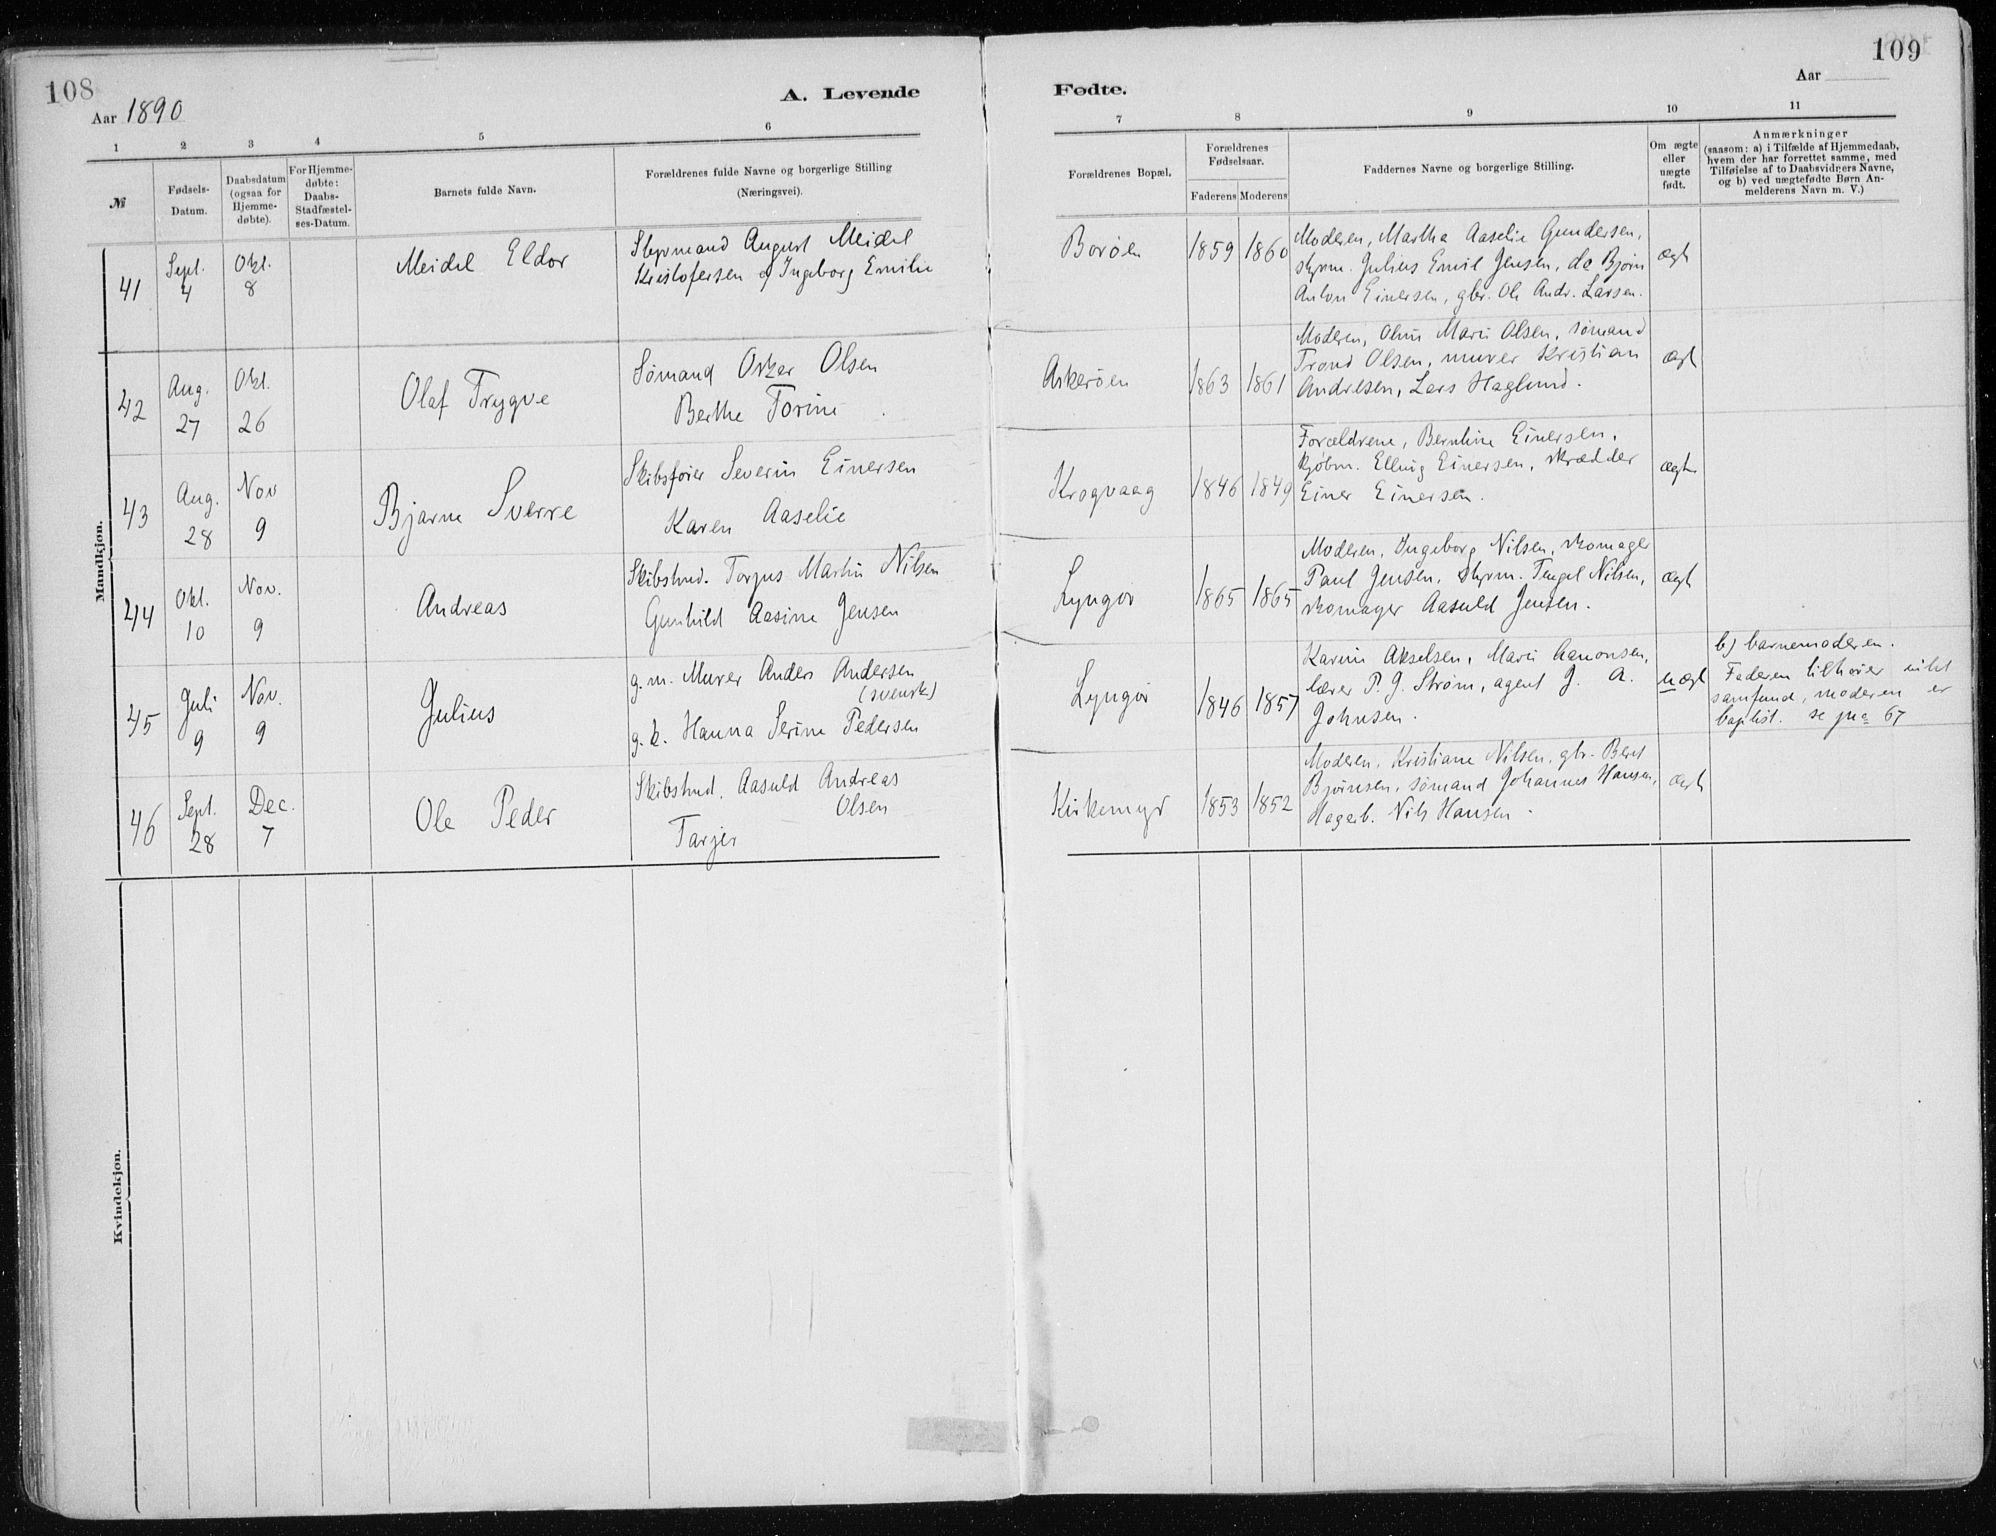 108
Aar 1890
A. Levende
1 2 3 4 5 6
№
Fødsels-
Datum.
Daabsdatum
(ogsaa for
Hjemme-
døbte).
For Hjemme-
døbte:
Daabs-
Stadfæstel-
ses-Datum.
Barnets fulde Navn.
Forældrenes fulde Navne og borgerlige Stilling
(Næringsvei).
Mandkjøn.
41
Sept.
4
Okt.
8
Meidel Eldor
Styrmand August Meidel
Kristofersen og Ingeborg Emilie
42
Aug.
27
Okt.
26
Olaf Trygve
Sømand Oskar Olsen
Berthe Torine
43
Aug.
28
Nov
9
Bjarne Sverre
Skibsfører Severin Einersen
Karen Aaselie
44
Okt.
10
Nov.
9
Andreas
Skibstmd. Torjus Martin Nilsen
Gunhild Aasine Jensen
45
Juli
9
Nov.
9
Julius
g. m. Murer Anders Andersen
(svensk)
g. k. Hanna Serine Pedersen
46
Sept.
28
Dec.
7
Ole Peder
Skibstmd. Aasuld Andreas
Olsen
Tarjer
Kvindekjøn.
109
Aar
Fødte.
7 8 9 10 11
Forældrenes Bopæl.
Forældrenes
Fødselsaar.
Faderens Moderens
Faddernes Navne og borgerlige Stilling.
Om ægte
eller
uægte
født.
Anmærkninger
(saasom: a) i Tilfælde af Hjemmedaab,
hvem der har forrettet samme, med
Tilføielse af to Daabsvidners Navne,
og b) ved uægtefødte Børn An-
melderens Navn m. V.)
Borøen
1859 1860
Moderen, Martha Aaselie Gundersen,
styrm. Julius Emil Jensen, do Bjørn
Anton Einersen, gbr. Ole Andr. Larsen.
ægt
Askerøen
1863 1861
Moderen, Oline Marie Olsen, sømand
Trond Olsen, murer Kristian
Andresen, Lars Haglund.
ægt
Krogvaag
1846 1849
Forældrene, Berntine Einersen,
kjøbm. Elling Einersen, skrædder
Einer Einersen.
ægte
Lyngør
1865 1865
Moderen, Ingeborg Nilsen, skomager
Paul Jensen, styrm. Tengel Nilsen,
skomager Aasuld Jensen.
ægt
Lyngør
1846 1857
Karine Akselsen, Marie Aanonsen,
lærer P. G. Strøm, agent J. A.
Johnsen.
uægt
b) barnemoderen.
Faderen tilhører intet
samfund, moderen er
baptist. se pag 67
Kirkemyr
1853 1852
Moderen, Kristiane Nilsen, gbr. Bernt
Bjørnsen, sømand Johannes Hansen,
Hagerb. Nils Hansen.
ægt